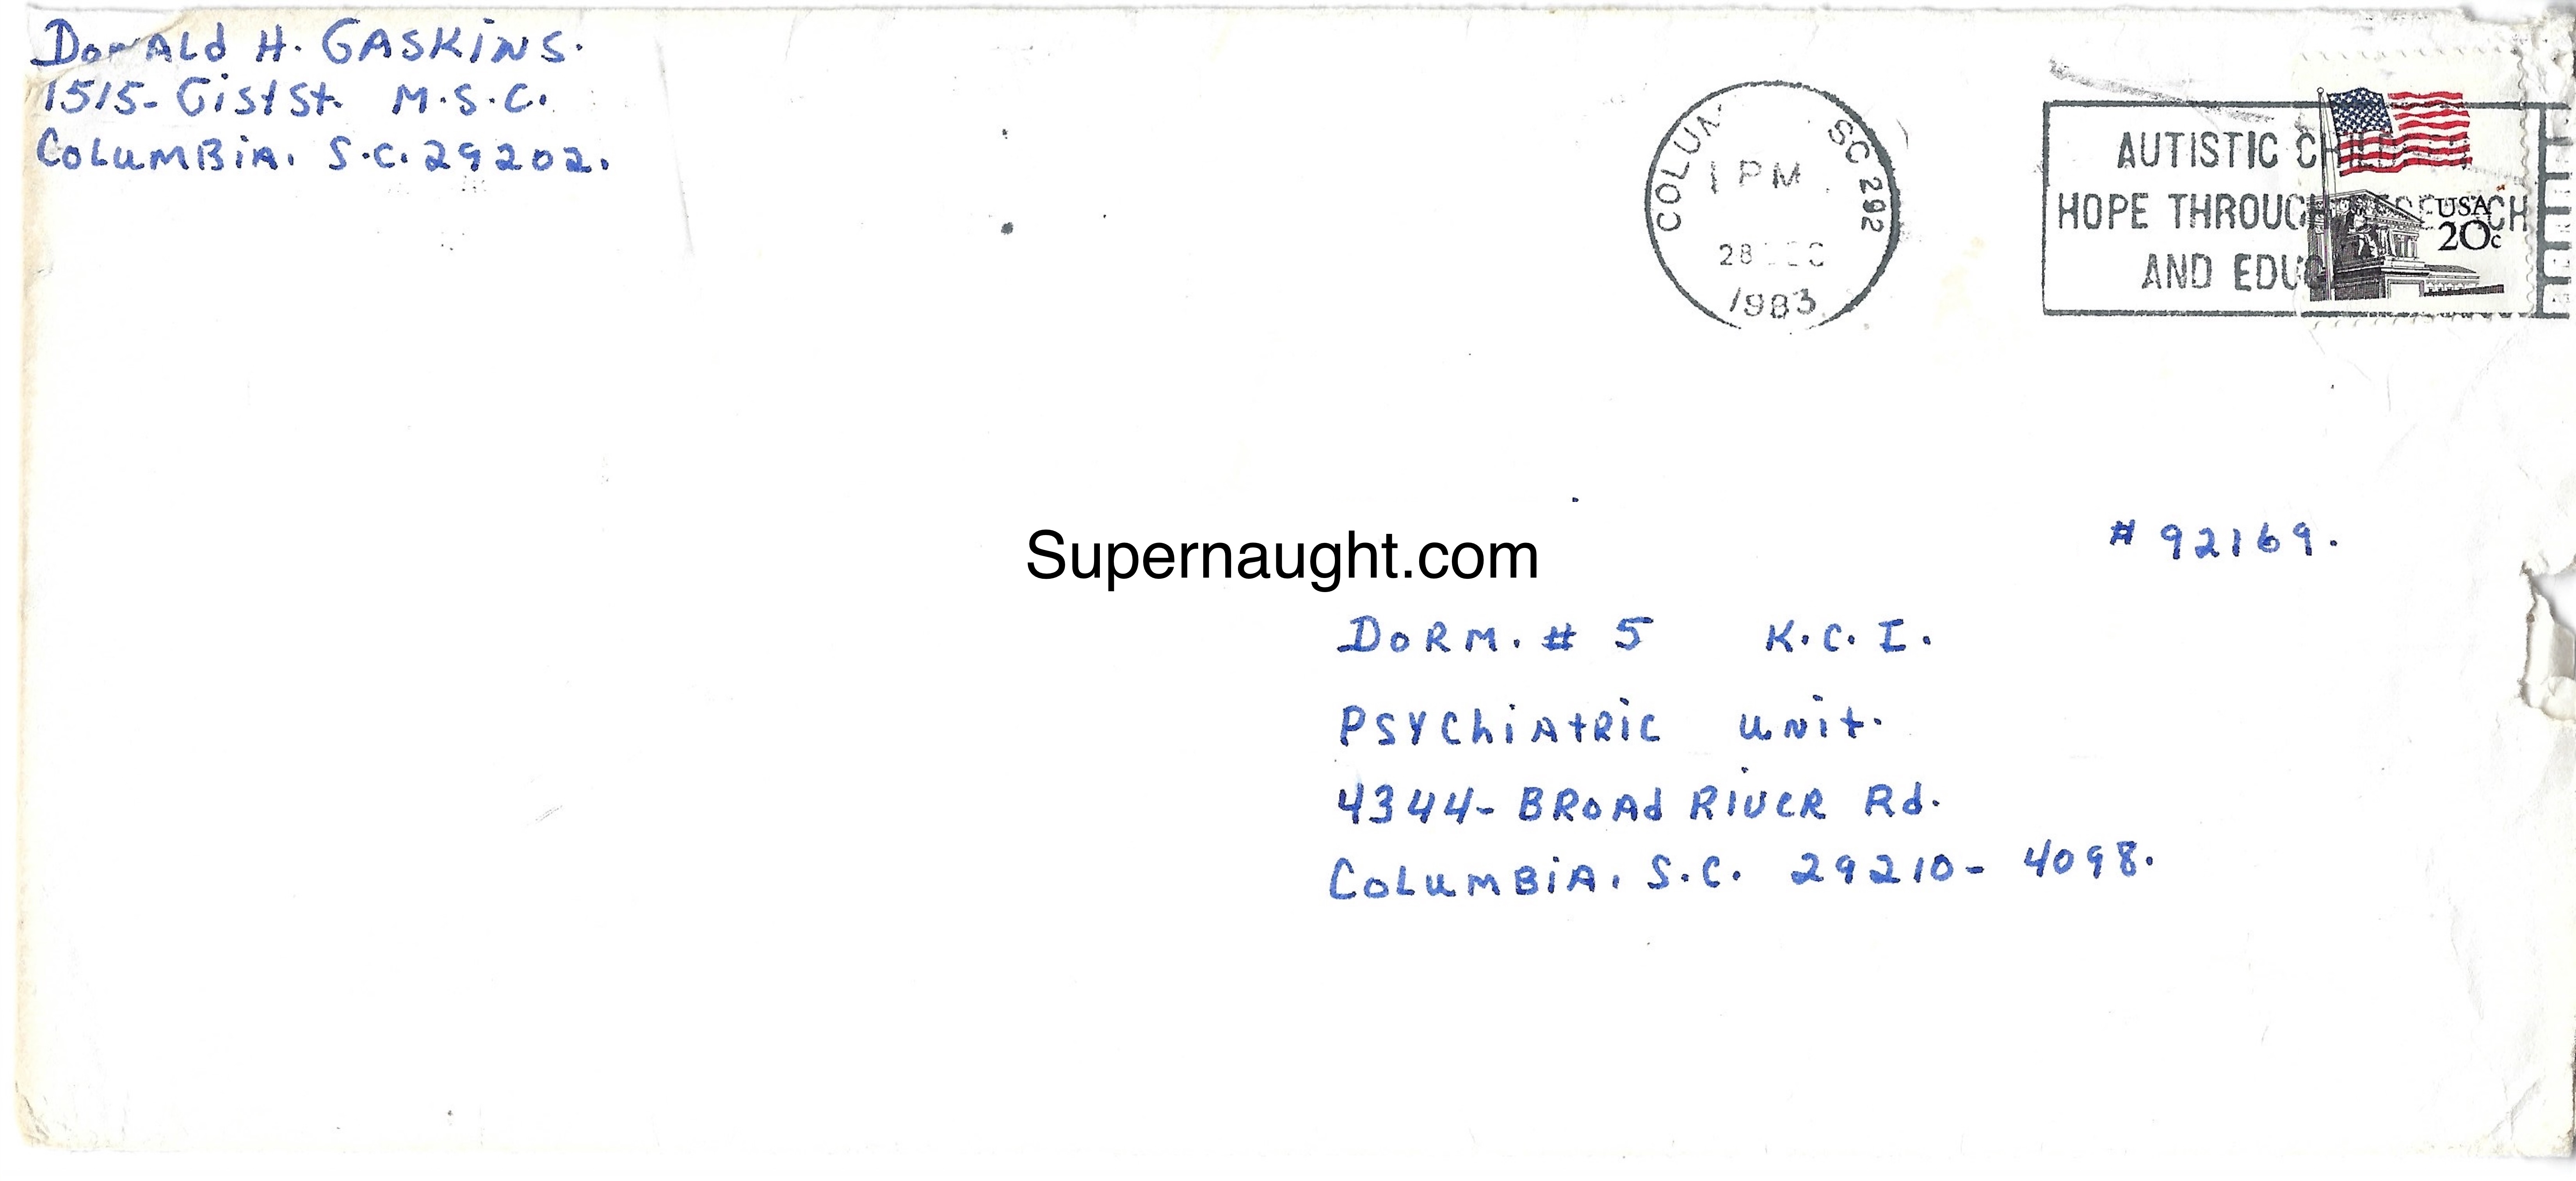 Donald H. GASKiNS.
1515- Gist St. M.S.C.
COLuMBiA. S.C. 29202.
COLUM SC 292
1 PM
28 DEC
1983
AUTISTIC
HOPE THROUGH RESEARCH
AND
USA
20c
# 92169.
Supernaught.com
DoRM. # 5 K.C.I.
PSYChiAtRiC uNit.
4344- BROAd RIVER Rd.
COLuMBiA. S.C. 29210- 4098.